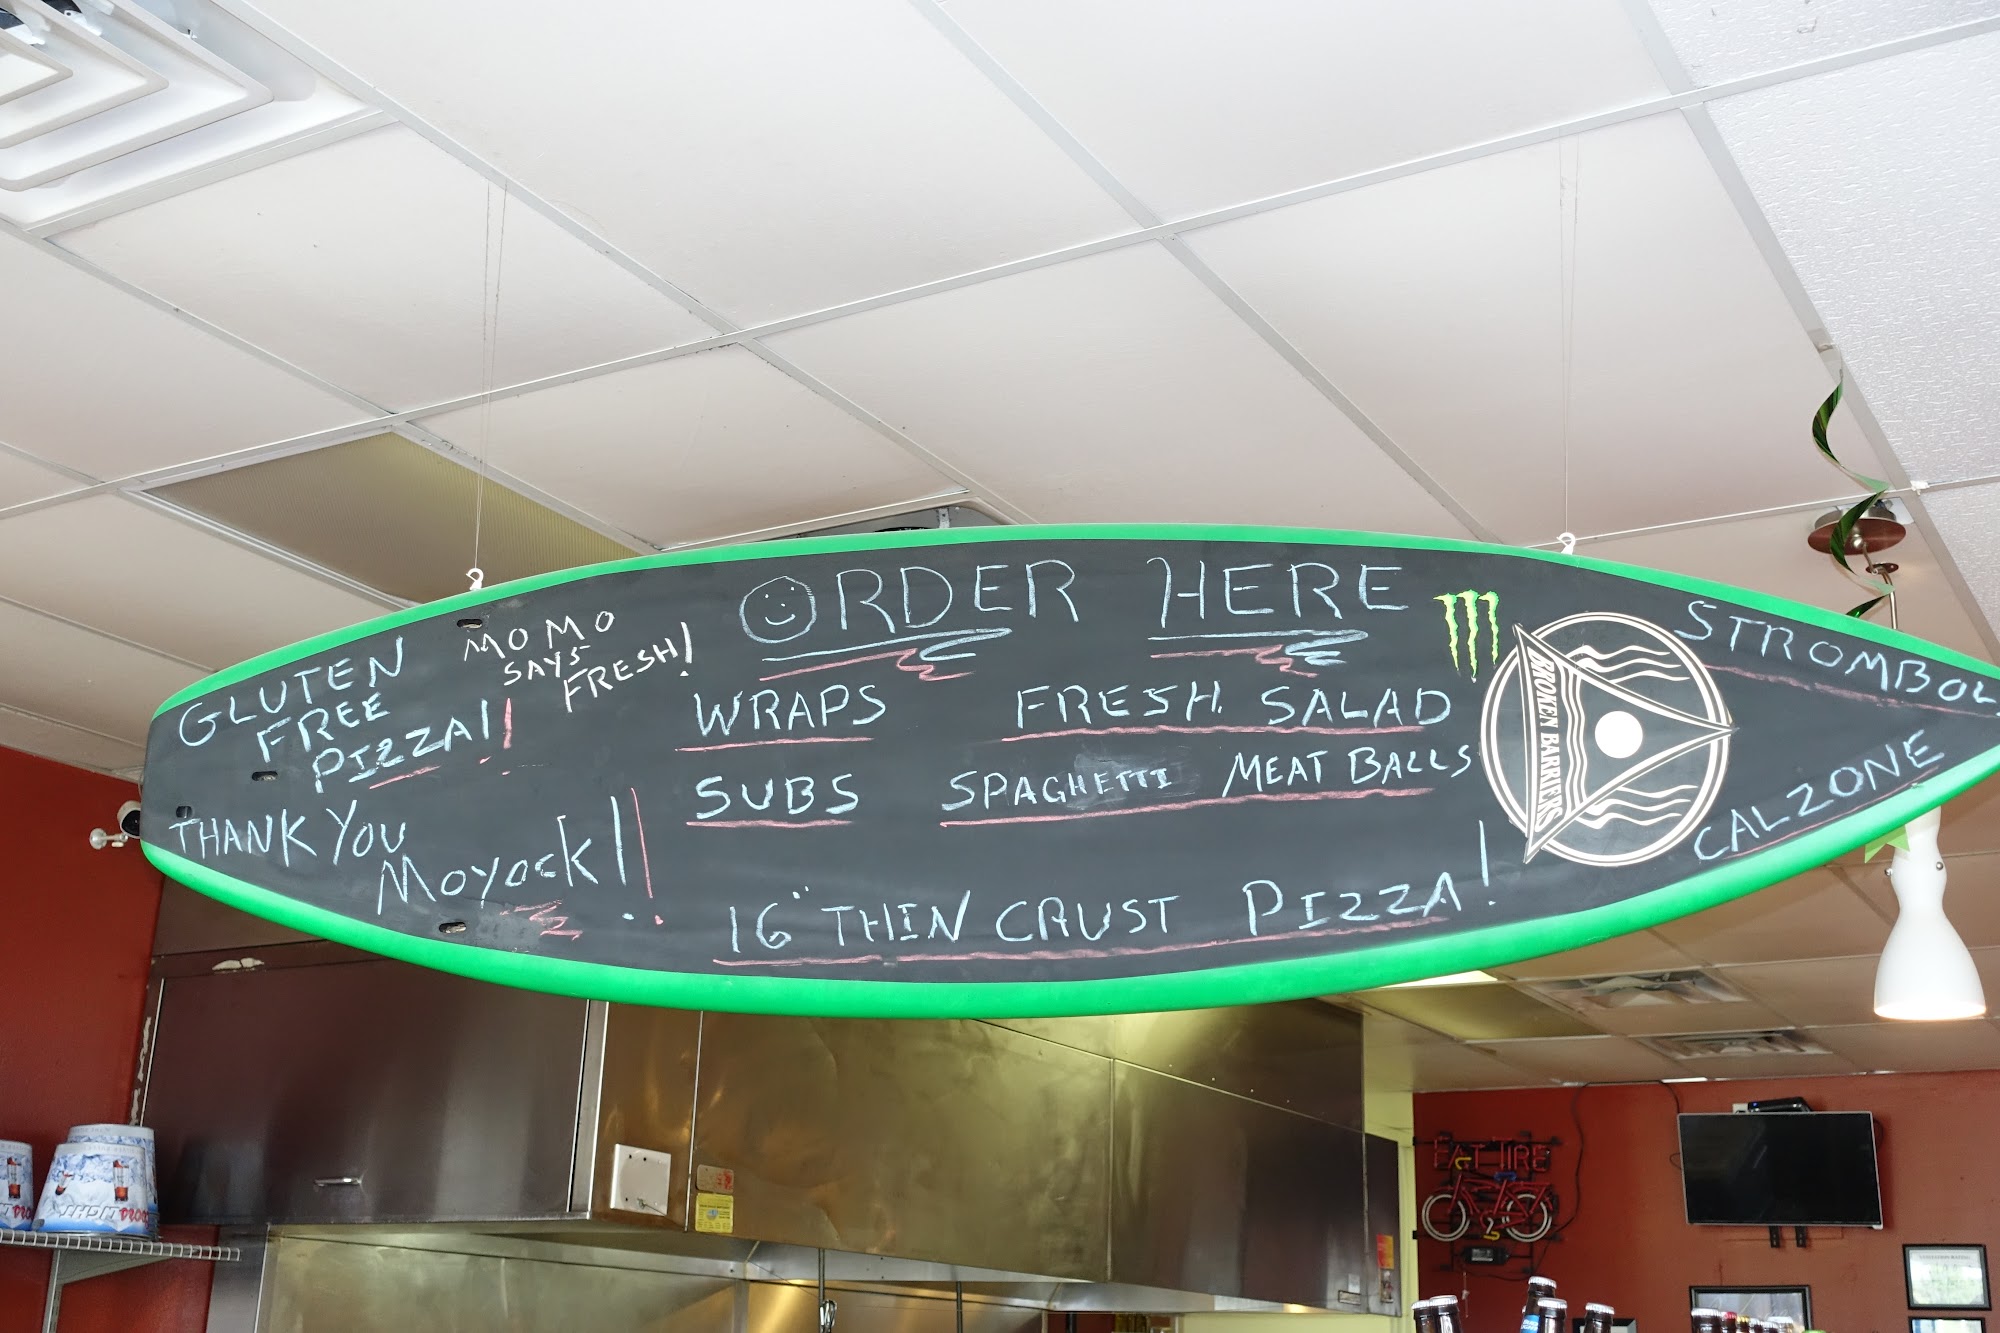 ORDER HERE
GLUTEN
FREE
PIZZA!!
MOMO
SAYS
FRESH!
THANK YOU
Moyock!!
WRAPS
FRESH SALAD
SUBS
SPAGHETTI MEAT BALLS
16" THIN CRUST PIZZA!
BROKEN BARRIERS
STROMBOL
CALZONE
FAT TIRE